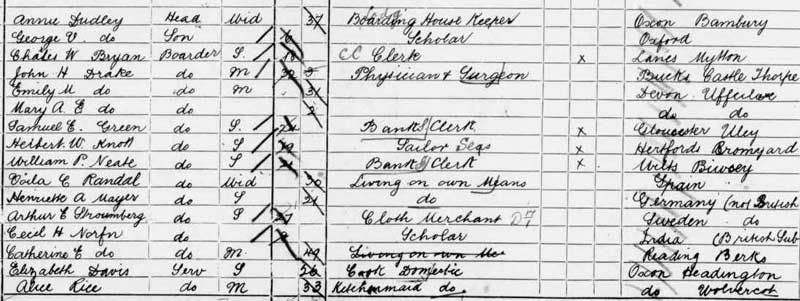 Annie Dudley Head Wid 37 Boarding House Keeper Oxon Bambury
George V. do Son 6 Scholar Oxford
Charles W Bryan Boarder S. 18 CC Clerk x Lancs Mytton
John H Drake do M 32 Physician & Surgeon Bucks Castle Thorpe
Emily M do do M 31 Devon Uffculme
Mary A. E do do 2 do do
Samuel E. Green do S. 24 Bank Clerk x Gloucester Uley
Herbert W. Knott do S 19 Tailor x Hertfords Bromyard
William P. Neate do S Bank Clerk x Wilts
C Randal do Wid 30 Living on own Means Spain
Henriette A Mayer do S 21 do Germany (not British
Arthur E Stroumberg do S 27 Cloth Merchant Sweden do
Cecil H Norfn do 9 Scholar India (British Sub
Catherine E do do M. 49 Living on own Me Reading Berks
Elizabeth Davis Serv S 26 Cook Domestic Oxon Headington
Alice Rice do M 33 Kitchenmaid do. do Wolvercot